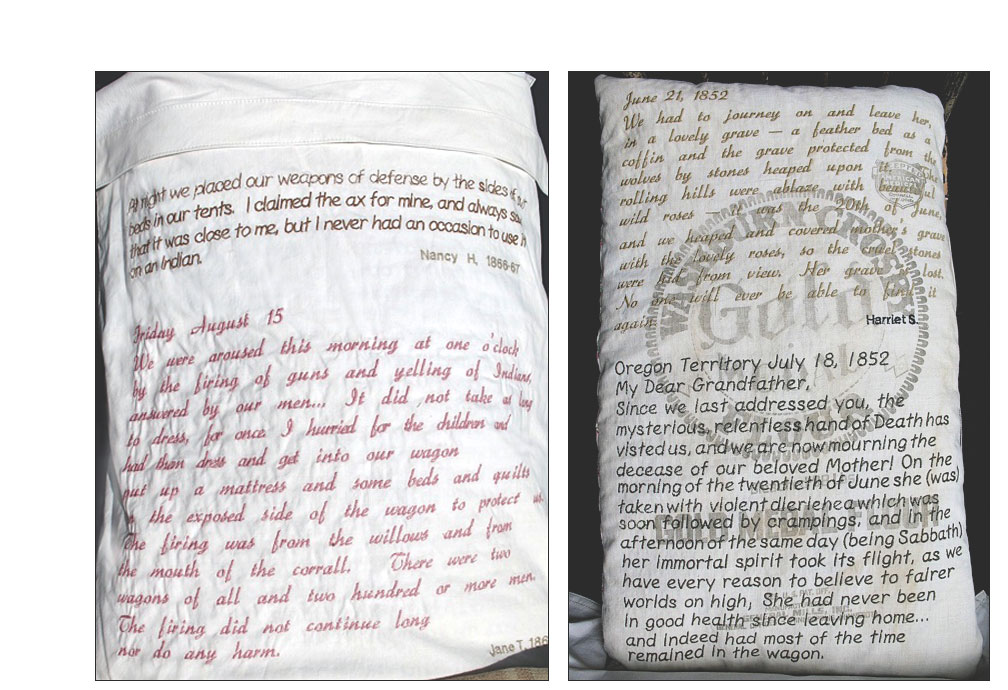 At night we placed our weapons of defense by the sides of our
beds in our tents. I claimed the ax for mine, and always saw
that it was close to me, but I never had an occasion to use it
on an Indian.
Nancy H. 1866-67
Friday August 15
We were aroused this morning at one o'clock
by the firing of guns and yelling of Indians,
answered by our men... It did not take as long
to dress, for once I hurried for the children and
had them dress and get into our wagon
put up a mattress and some beds and quilts
on the exposed side of the wagon to protect us.
The firing was from the willows and from
the mouth of the corrall. There were two
wagons of all and two hundred or more men.
The firing did not continue long
nor do any harm.
Jane T. 186
June 21, 1852
We had to journey on and leave her,
in a lovely grave — a feather bed as a
coffin and the grave protected from the
wolves by stones heaped upon it. The
rolling hills were ablaze with beautiful
wild roses — it was the 20th of June,
and we heaped and covered mother's grave
with the lovely roses, so the cruel stones
were hid from view. Her grave is lost.
No one will ever be able to find it
again.
Harriet S.
Oregon Territory July 18, 1852
My Dear Grandfather,
Since we last addressed you, the
mysterious, relentless hand of Death has
visted us, and we are now mourning the
decease of our beloved Mother! On the
morning of the twentieth of June she (was)
taken with violent dieriehea which was
soon followed by crampings, and in the
afternoon of the same day (being Sabbath)
her immortal spirit took its flight, as we
have every reason to believe to fairer
worlds on high, She had never been
in good health since leaving home...
and indeed had most of the time
remained in the wagon.
WASHBURN CROSBY
Gold Medal
GOLD MEDAL
GENERAL MILLS, INC.